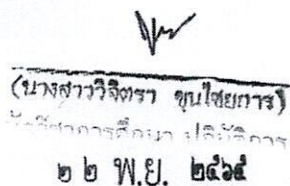 (นางสาววิจิตรา ขุนไชยการ)
นักวิชาการศึกษา ปฏิบัติการ
๒ ๒ พ.ย. ๒๕๖๕